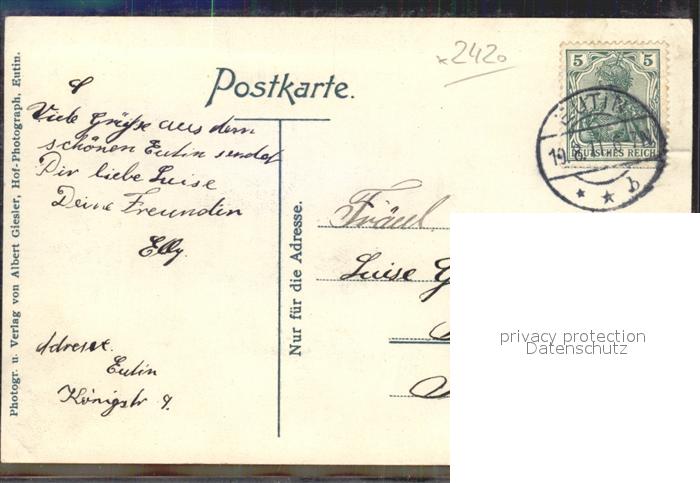 2420
Postkarte.
5 5
DEUTSCHES REICH
EUTIN
19.8.11.8
* * b
Viele Grüße aus dem
schönen Eutin sendet
Dir liebe Luise
Deine Freundin
Elly.
Adresse.
Eutin
Königstr
Fräul
Luise G
Nur für die Adresse.
Photogr. u. Verlag von Albert Giesler, Hof-Photograph, Eutin.
privacy protection
Datenschutz